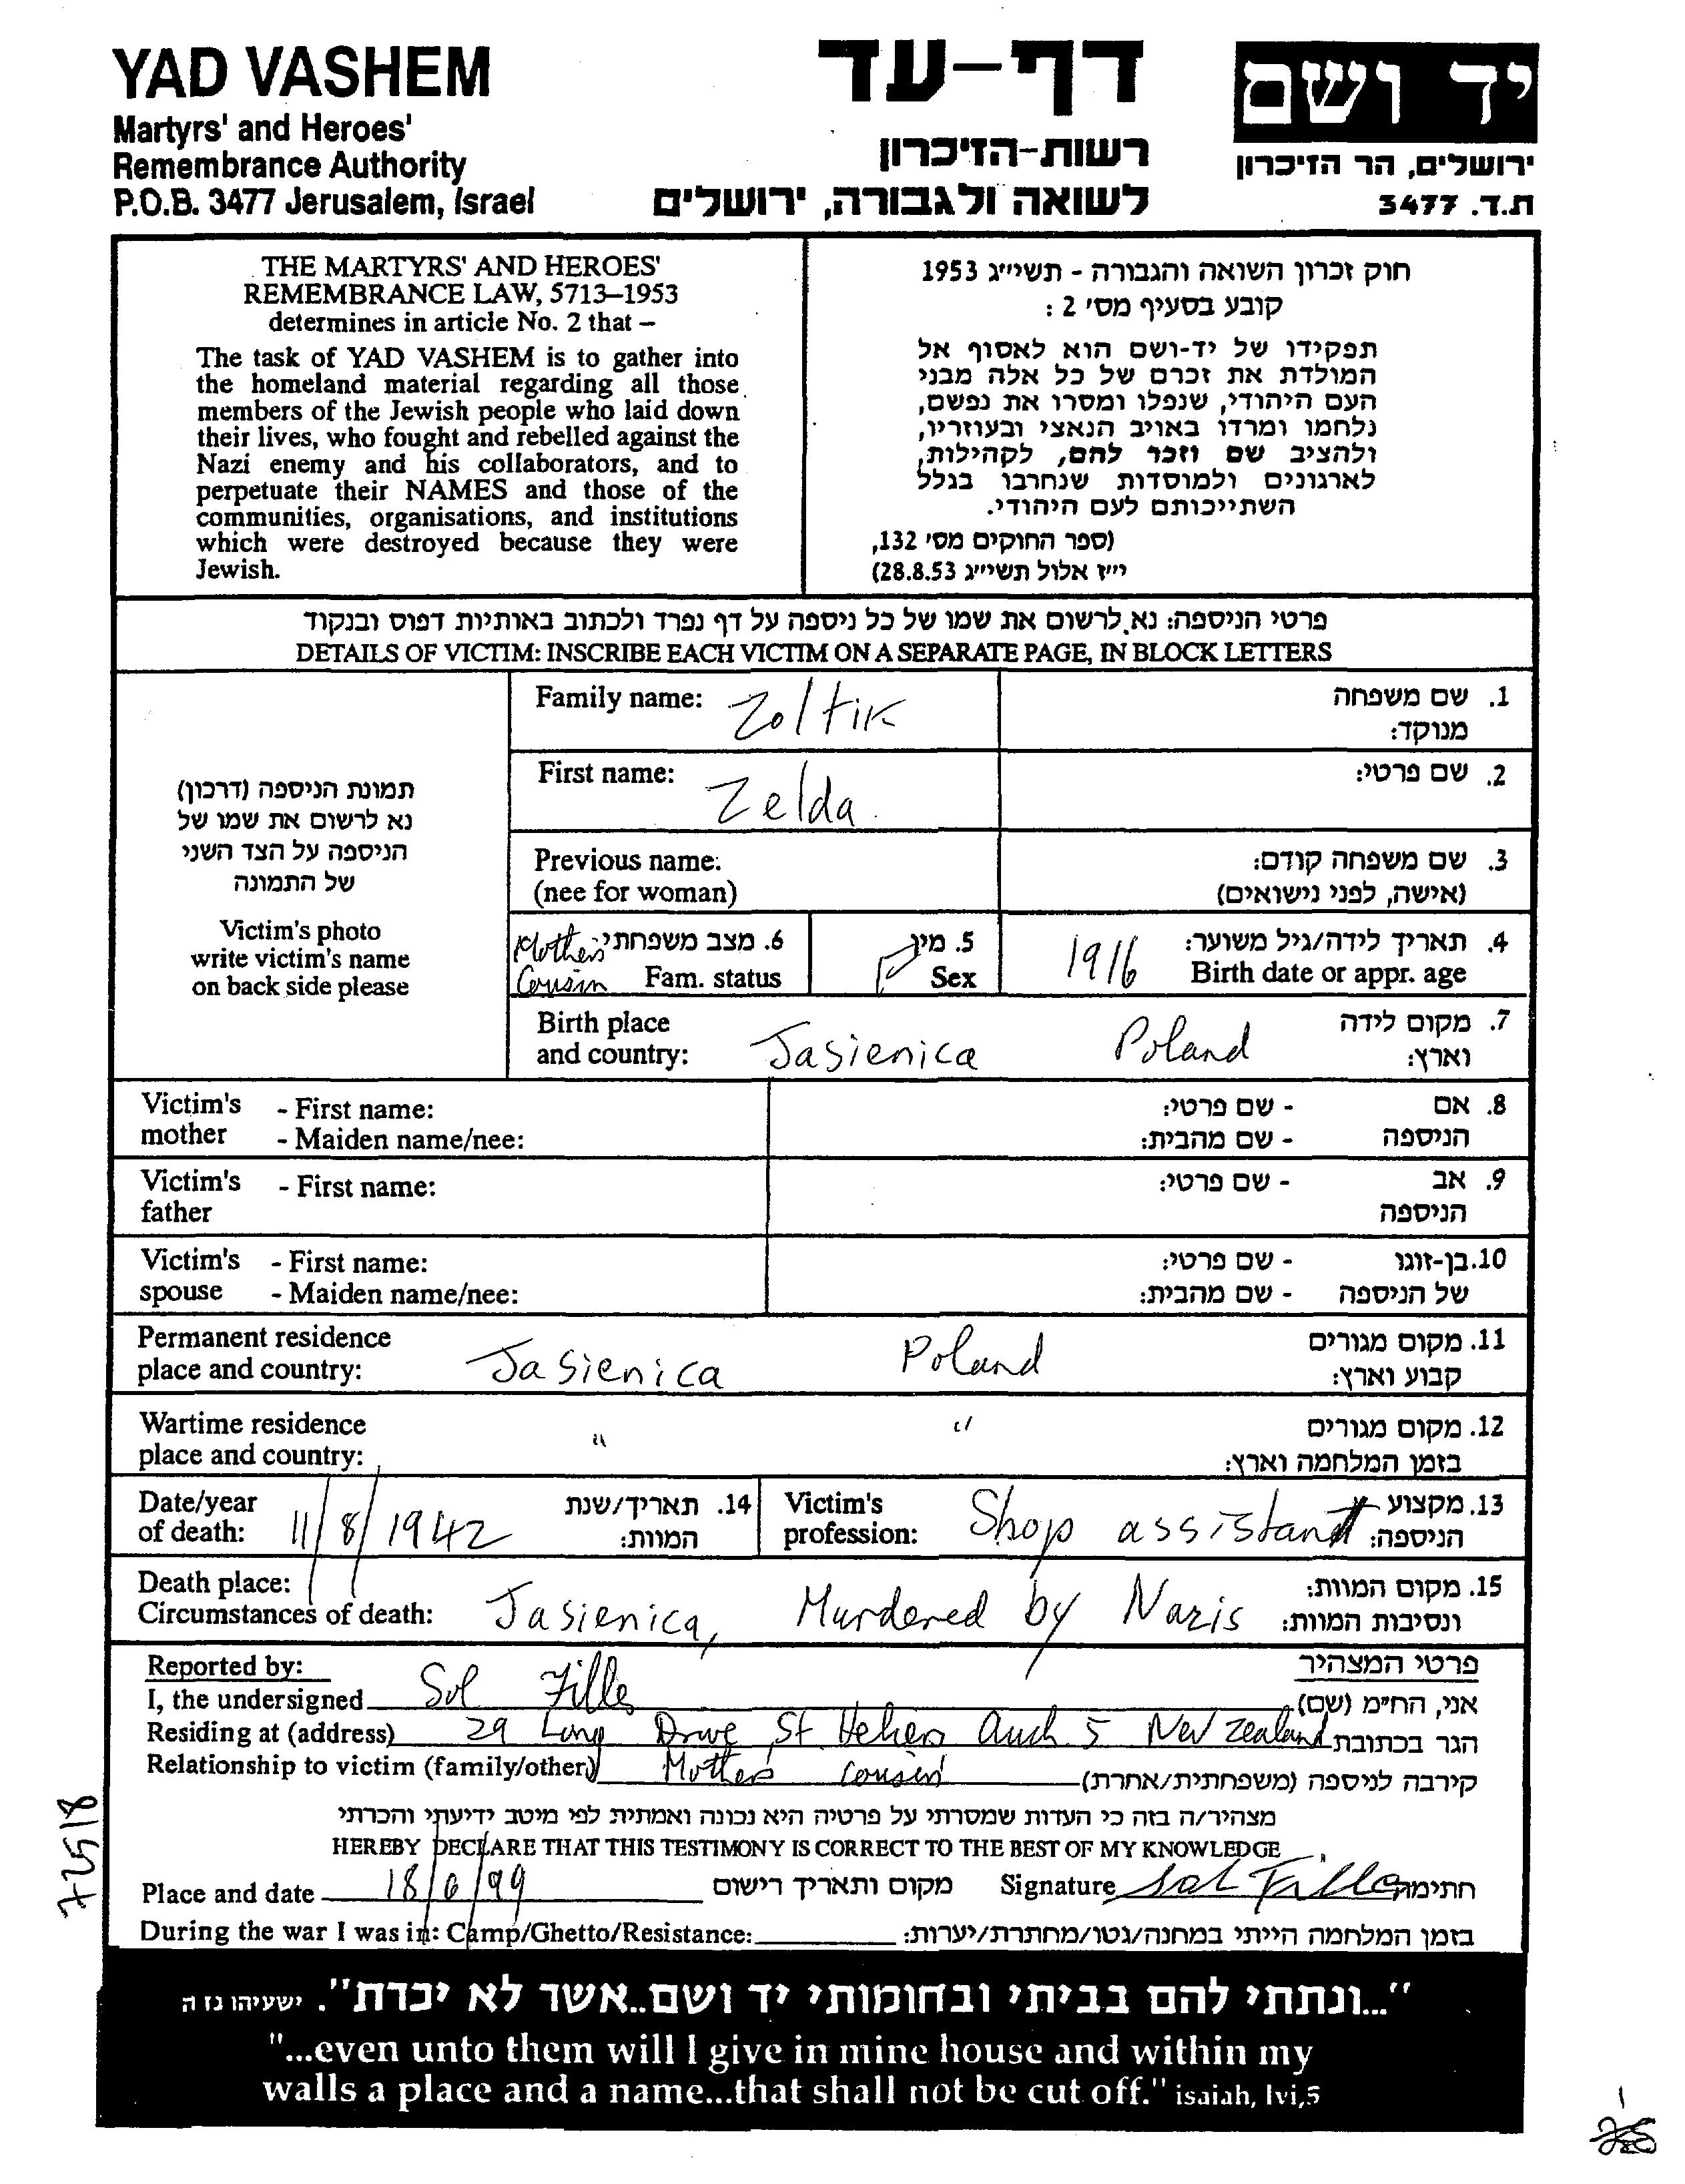 YAD VASHEM
Martyrs' and Heroes'
Remembrance Authority
P.O.B. 3477 Jerusalem, Israel
דף-עד
רשות-הזיכרון
לשואה ולגבורה, ירושלים
יד ושם
ירושלים, הר הזיכרון
ת.ד. 3477
THE MARTYRS' AND HEROES'
REMEMBRANCE LAW, 5713–1953
determines in article No. 2 that –
The task of YAD VASHEM is to gather into
the homeland material regarding all those
members of the Jewish people who laid down
their lives, who fought and rebelled against the
Nazi enemy and his collaborators, and to
perpetuate their NAMES and those of the
communities, organisations, and institutions
which were destroyed because they were
Jewish.
חוק זכרון השואה והגבורה - תשי״ג 1953
קובע בסעיף מס' 2 :
תפקידו של יד-ושם הוא לאסוף אל
המולדת את זכרם של כל אלה מבני
העם היהודי, שנפלו ומסרו את נפשם,
נלחמו ומרדו באויב הנאצי ובעוזריו,
ולהציב שם וזכר להם, לקהילות,
לארגונים ולמוסדות שנחרבו בגלל
השתייכותם לעם היהודי.
(ספר החוקים מס' 132,
י״ז אלול תשי״ג 28.8.53)
פרטי הניספה: נא לרשום את שמו של כל ניספה על דף נפרד ולכתוב באותיות דפוס ובנקוד
DETAILS OF VICTIM: INSCRIBE EACH VICTIM ON A SEPARATE PAGE, IN BLOCK LETTERS
תמונת הניספה (דרכון)
נא לרשום את שמו של
הניספה על הצד השני
של התמונה
Victim's photo
write victim's name
on back side please
Family name: Zoltik 1. שם משפחה
מנוקד:
First name: Zelda 2. שם פרטי:
Previous name: 3. שם משפחה קודם:
(nee for woman) (אישה, לפני נישואים)
Mothers 6. מצב משפחתי 5. מין 1916 4. תאריך לידה/גיל משוער:
Cousin Fam. status Sex Birth date or appr. age
Birth place 7. מקום לידה
and country: Jasienica Poland וארץ:
Victim's - First name: - שם פרטי: 8. אם
mother - Maiden name/nee: - שם מהבית: הניספה
Victim's - First name: - שם פרטי: 9. אב
father הניספה
Victim's - First name: - שם פרטי: 10. בן-זוגו
spouse - Maiden name/nee: - שם מהבית: של הניספה
Permanent residence 11. מקום מגורים
place and country: Jasienica Poland קבוע וארץ:
Wartime residence " " 12. מקום מגורים
place and country: בזמן המלחמה וארץ:
Date/year 14. תאריך/שנת Victim's 13. מקצוע
of death: 11/8/1942 המוות: profession: Shop assistant הניספה:
Death place: 15. מקום המוות:
Circumstances of death: Jasienica, Murdered by Nazis ונסיבות המוות:
Reported by: פרטי המצהיר
I, the undersigned Sol Filler אני, הח״מ (שם)
Residing at (address) 29 Long Drive St Heliers Auch. 5 New Zealand הגר בכתובת
Relationship to victim (family/other) Mothers cousin קירבה לניספה (משפחתית/אחרת)
מצהיר/ה בזה כי העדות שמסרתי על פרטיה היא נכונה ואמתית לפי מיטב ידיעתי והכרתי
HEREBY DECLARE THAT THIS TESTIMONY IS CORRECT TO THE BEST OF MY KNOWLEDGE
Place and date 18/6/99 מקום ותאריך רישום Signature Sol Filler חתימה
During the war I was in: Camp/Ghetto/Resistance: בזמן המלחמה הייתי במחנה/גטו/מחתרת/יערות:
72518
"...ונתתי להם בביתי ובחומותי יד ושם..אשר לא יכרת". ישעיהו נז ה
"...even unto them will I give in mine house and within my
walls a place and a name...that shall not be cut off." isaiah, lvi,5